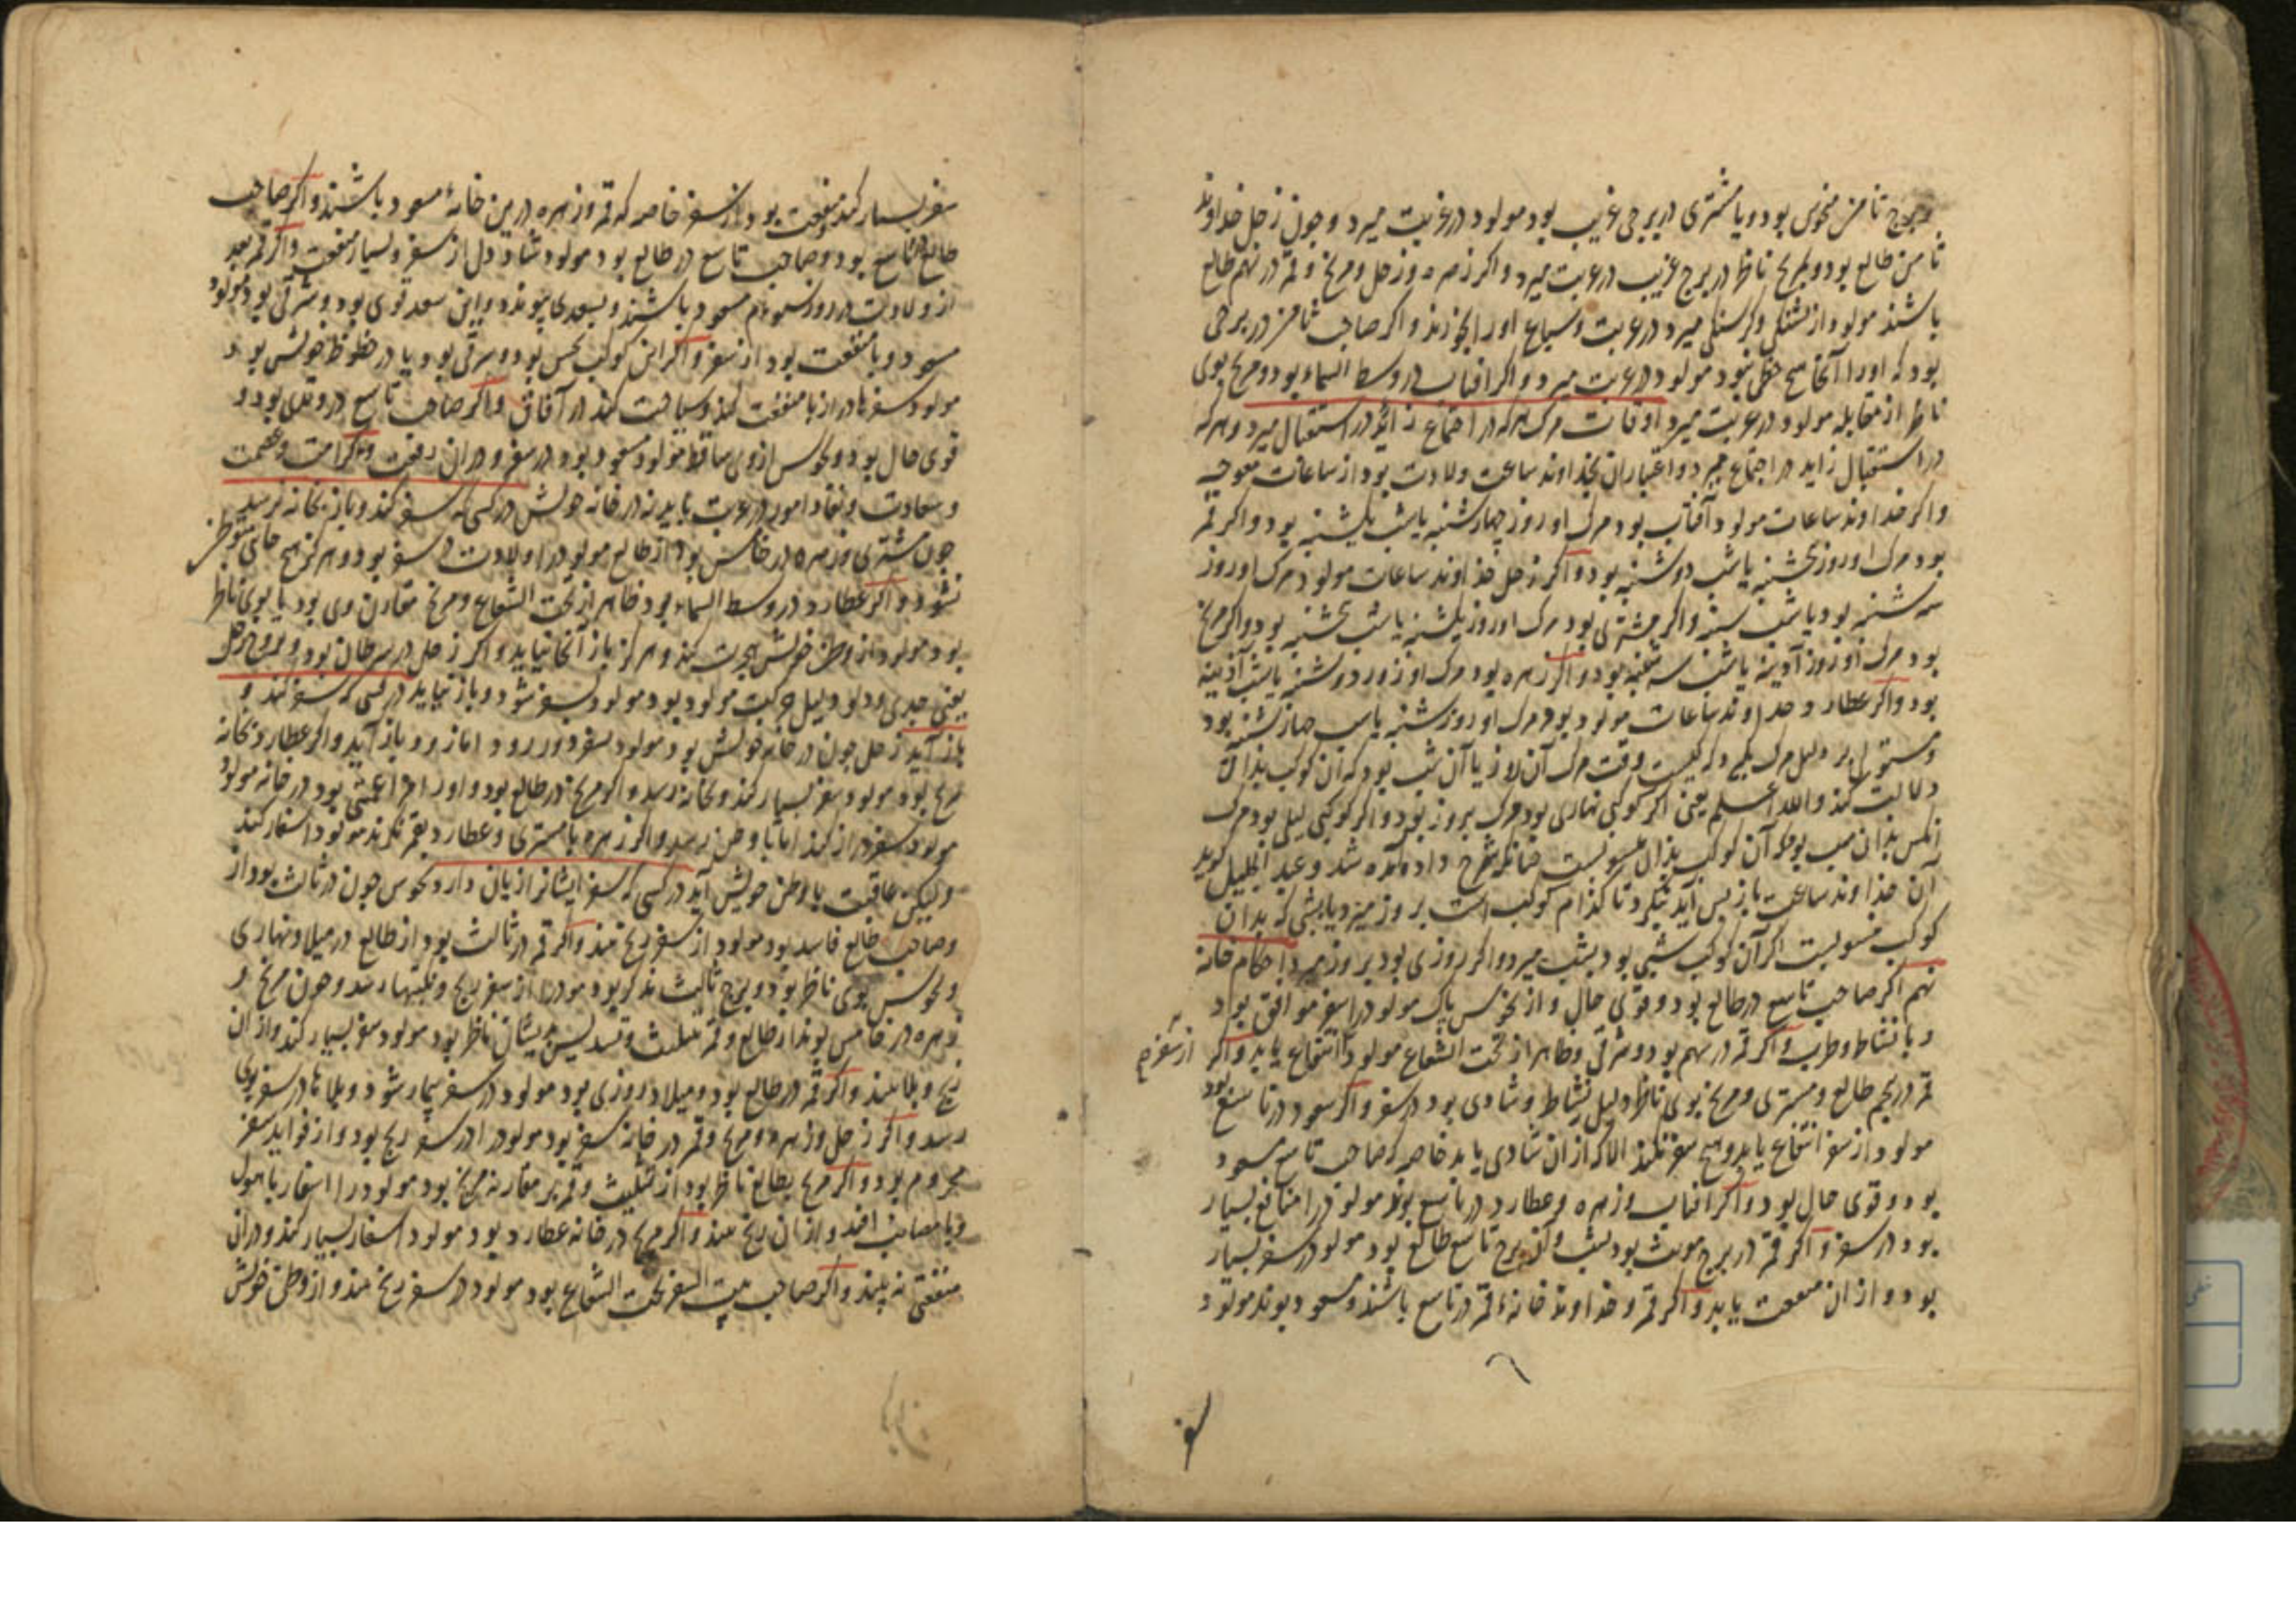 برج ثامن منحوس بود و یا مشتری در برجی غریب بود مولود در غربت میرد و چون زحل خداوند
ثامن طالع بود و بمریخ ناظر در برج غریب در غربت میرد و اکر زهره و زحل و مریخ و قمر در نهم طالع
باشند مولود از تشنکی و کرسنکی میرد در غربت و سباع او را بخورند و اکر صاحب ثامن در برجی
بود که او را آنجا هیچ حظی نبود مولود در غربت میرد و اکر افتاب در وسط السماء بود و مریخ بوی
ناظر از مقابله مولود در غربت میرد اوقات مرک هرکه در اجتماع زاید در استقبال میرد و هرکه
در استقبال زاید در اجتماع میرد و اعتبار ان بخداوند ساعت ولادت بود از ساعات معوجه
واکر خداوند ساعات مولود آفتاب بود مرک او روز چهارشنبه یا شب یکشنبه بود و اکر قمر
بود مرک او روز پنجشنبه یا شب دوشنبه بود و اکر زحل خداوند ساعات مولود مرک او روز
سه شنبه بود یا شب شنبه و اکر مشتری بود مرک او روز یکشنبه یا شب پنجشنبه بود و اکر مریخ
بود مرک او روز آدینه یا شب سه شنبه بود و اکر زهره بود مرک او روز دوشنبه یا شب آذینه
بود و اکر عطارد خداوند ساعات مولود بود مرک او روز شنبه یا شب چهارشنبه بود
و مستولی بر دلیل مرک بنکرد که کیست وقت مرک آن روز یا آن شب بود که آن کوکب بذان
دلالت کند والله اعلم یعنی اکر کوکبی نهاری بود مرک بروز بود و اکر کوکبی لیلی بود مرک
انکس بدان شب بود که آن کوکب بذان منسوبست چنانکه شرح داده آمده شد و عبد الجلیل کوید
آن خذاوند ساعت باز پس آید بنکرد تا کذام کوکب است بروز میرد یا بشبی که بدان
کوکب منسوبست اکر آن کوکب شبی بود بشب میرد و اکر روزی بود بروز میرد احکام خانه
نهم اکر صاحب تاسع در طالع بود و قوی حال و از نحوس پاک مولود را سفر موافق بود
و با نشاط و طرب و اکر قمر در نهم بود و شرقی و ظاهر از تحت الشعاع مولود انتفاع یابد و اکر
از سفر هم
قمر در پنجم طالع و مشتری و مریخ بوی ناظر دلیل نشاط و شادی بود در سفر و اکر سعود در تاسع بود
مولود از سفر انتفاع یابد و هیچ سفر نکند الا که از ان شادی یابد خاصه که صاحب تاسع مسعود
بود و قوی حال بود و اکر افتاب و زهره و عطارد در تاسع بوند مولود را منافع بسیار
بود در سفر و اکر قمر در برج مونث بود بشب و آن برج تاسع طالع بود مولود در سفر بسیار
بود و از ان منفعت یابد و اکر قمر و خداوند خانهٔ قمر در تاسع باشند و مسعود بوند مولود
سفر
سفر بسیار کند و منفعت بود از سفر خاصه که قمر و زهره درین خانهٔ مسعود باشند و اکر صاحب
طالع در تاسع بود و صاحب تاسع در طالع بود مولود شاد دل از سفر و بسیار منفعت و اکر قمر بعد
از ولادت در روز سوم مسعود باشند و بسعدی پیوندد و این سعد قوی بود و شرقی بود مولود
مسعود و با منفعت بود از سفر و اکر این کوکب نحس بود و شرقی بود و یا در حظوظ خویش بود
مولود سفرها دراز با منفعت کند و سیاحت کند در آفاق و اکر صاحب تاسع در وتدی بود و
قوی حال بود و نحوس از وی ساقط مولود مسعود بود در سفر و در ان رفعت و کرامت و عصمت
و سعادت و نفاذ امور در غربت یابد نه در خانه خویش در کسی که سفر کند و باز بخانه نرسد
چون مشتری و زهره در خامس بود از طالع مولود در اولادت در سفر بود و هرکز هیچ جای متوطن
نشود و اکر عطارد در وسط السماء بود ظاهر از تحت الشعاع و مریخ مقارن وی بود یا بوی ناظر
بود مولود از وطن خویش هجرت کند و هرکز باز آنجا نیاید و اکر زحل در سرطان بود و بروج زحل
یعنی جدی و دلو دلیل حرکت مولود بود مولود بسفر شود و باز نیاید در کسی که سفر کند و
باز آید زحل چون در خانه خویش بود مولود بسفر دور رود اما زود باز آید و اکر عطارد بخانه
مریخ بود مولود سفر بسیار کند و بخانه رسد و اکر مریخ در طالع بود و او را مزاعمتی بود در خانه مولود
مولود سفر دراز کند اما با وطن رسد و اکر زهره یا مشتری و عطارد بقمر نکرند مولود اسفار کند
ولیکن عاقبت با وطن خویش آید در کسی که سفر ایشانرا زیان دارد نحوس چون در ثالث بود از
وصاحب طالع فاسد بود مولود از سفر رنج بیند و اکر قمر در ثالث بود از طالع در میلاد نهاری
و نحوس بوی ناظر بود و برج ثالث مذکر بود مولود را از سفر رنج و نکبتها رسد و چون مریخ و
زهره در خامس بوند از طالع و قمر بتثلیث و تسدیس بدیشان ناظر بود مولود سفر بسیار کند و از ان
رنج و بلا بیند و اکر قمر در طالع بود و میلاد روزی بود مولود در سفر بیمار شود و بلاها در سفر بوی
رسد و اکر زحل و زهره و مریخ و قمر در خانه سفر بود مولود را در سفر رنج بود و از فواید سفر
محروم بود و اکر مریخ بطالع ناظر بود از تثلیث و قمر بر مقارنه مریخ بود مولود را اسفار با هول
و با مصایب افتد و از ان رنج بیند و اکر مریخ در خانه عطارد بود مولود اسفار بسیار کند و در ان
منفعتی نه بیند و اکر صاحب بیت السفر تحت الشعاع بود مولود در سفر رنج بیند و از وطن خویش